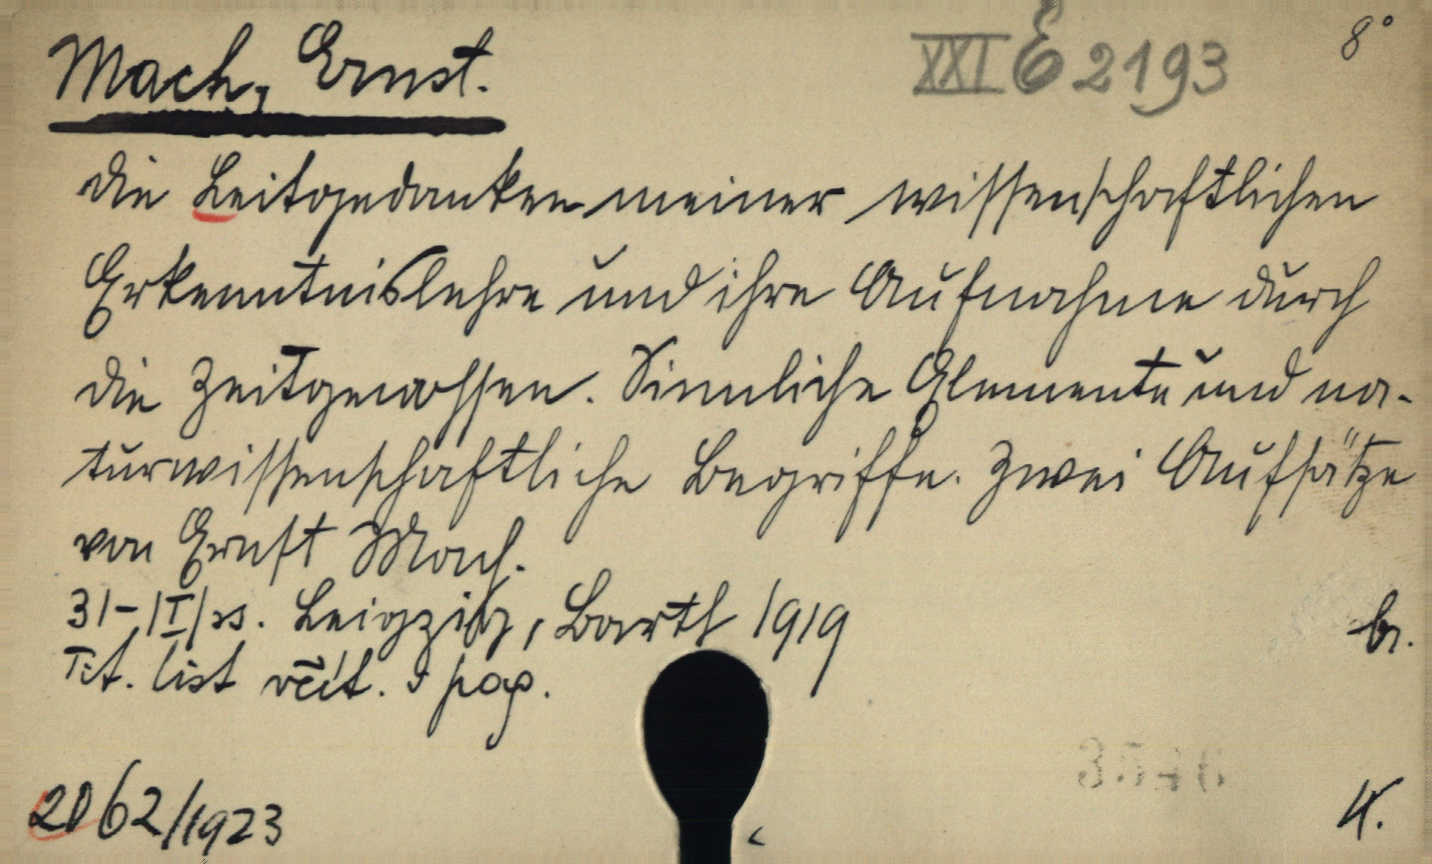 Mach, Ernst.
XXI E 2193
8°
Die Leitgedanken meiner wissenschaftlichen
Erkenntnislehre und ihre Aufnahme durch
die Zeitgenossen. Sinnliche Elemente und na-
turwissenschaftliche Begriffe. Zwei Aufsätze
von Ernst Mach.
31-|I| ss. Leipzig, Barth 1919
br.
Tit. list včít. pag.
2062/1923